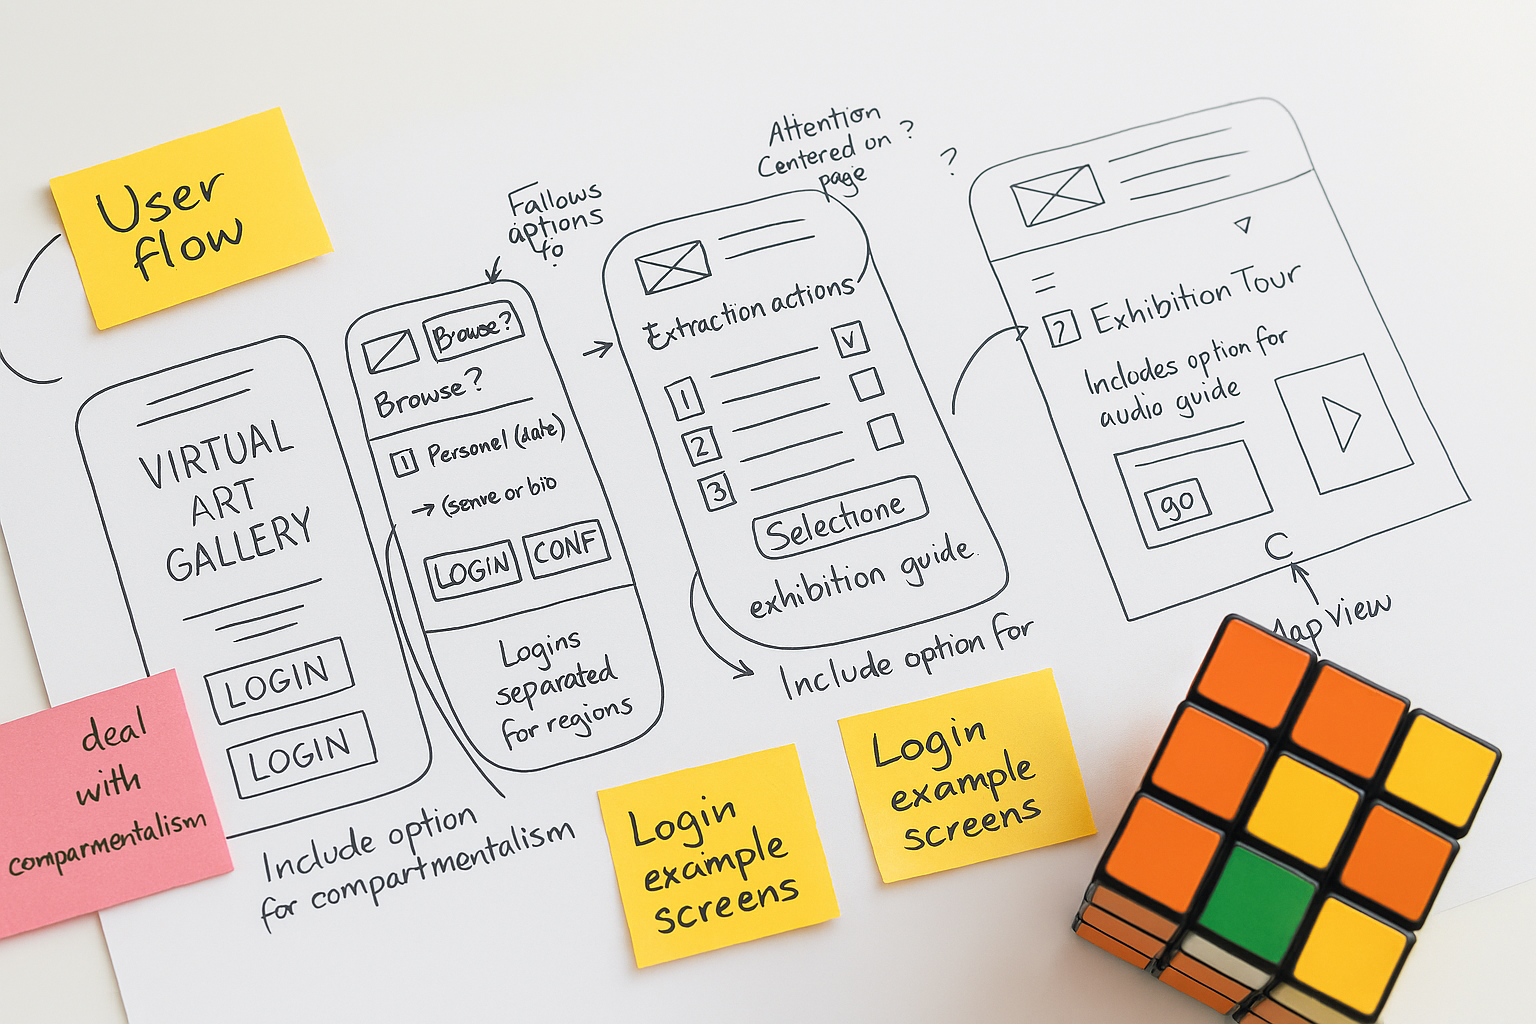 User
flow
VIRTUAL
ART
GALLERY
LOGIN
LOGIN
deal
with
comparmentalism
Include option
for compartmentalism
Fallows
aptions
to
Browse?
Browse?
1 Personel (date)
→ (senre or bio
LOGIN CONF
Logins
separated
for regions
Attention
Centered on ?
page
Extraction actions
V
1
2
3
Selectione
exhibition guide
Include option for
Login
example
screens
Login
example
screens
?
? Exhibition Tour
Inclodes option for
audio guide
go
C
Map View